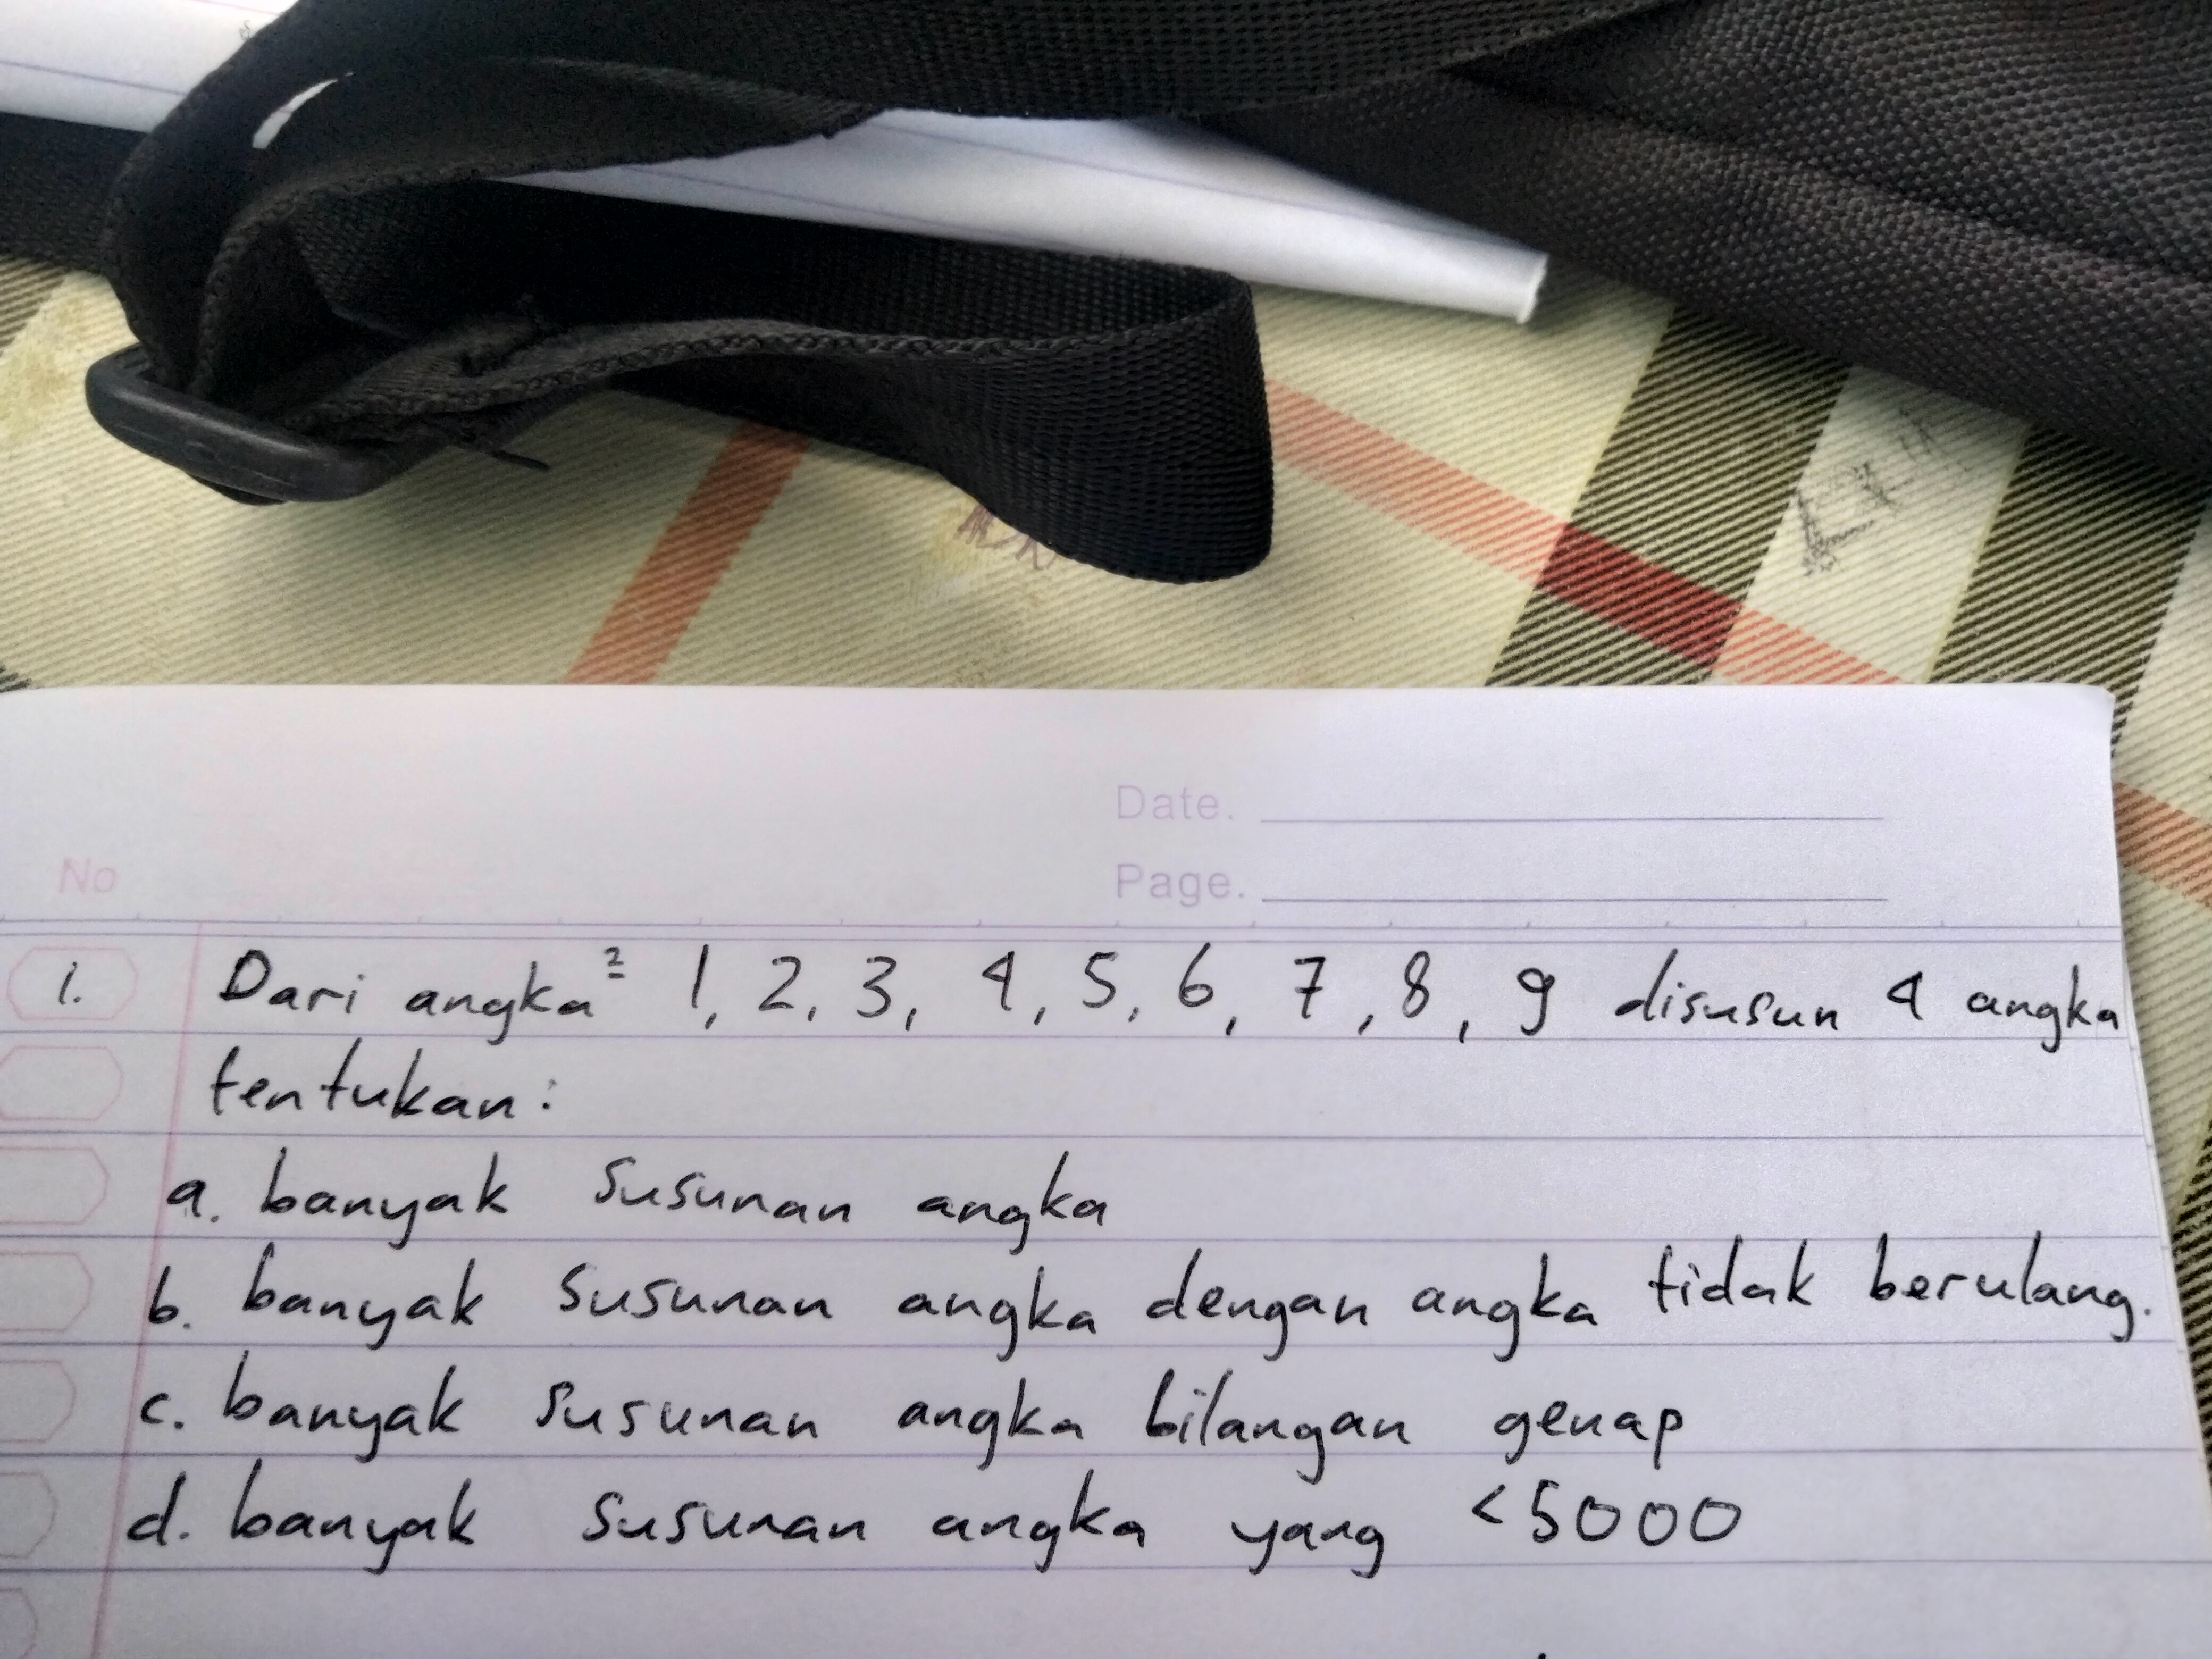 Date.
Page.
No
1. Dari angka² 1, 2, 3, 4, 5, 6, 7, 8, 9 disusun 4 angka
tentukan:
a. banyak susunan angka
b. banyak susunan angka dengan angka tidak berulang.
c. banyak susunan angka bilangan genap
d. banyak susunan angka yang <5000